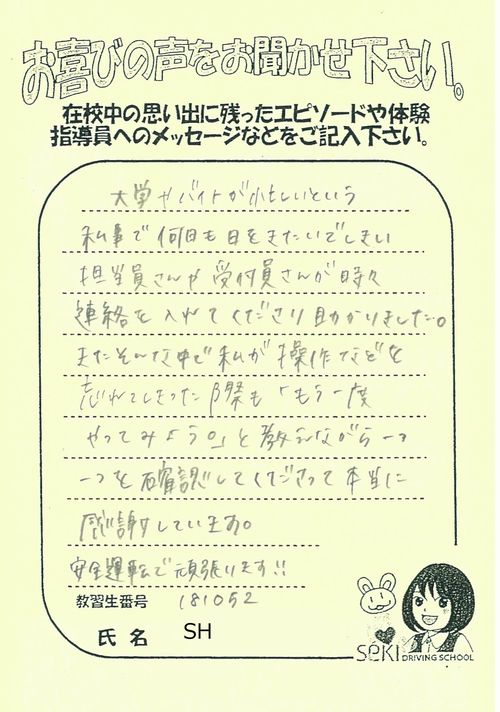 お喜びの声をお聞かせ下さい。
在校中の思い出に残ったエピソードや体験
指導員へのメッセージなどをご記入下さい。
大学やバイトが忙しいという
私事で何回も日をまたいでしまい
担当員さんや受付員さんが時々
連絡を入れてくださり助かりました。
またそんな中で私が操作などを
忘れてしまった際も「もう一度
やってみよう。」と教えながら一つ
一つを確認してくださって本当に
感謝しています。
安全運転で頑張ります!!
教習生番号 181052
氏名 SH
SEKI DRIVING SCHOOL